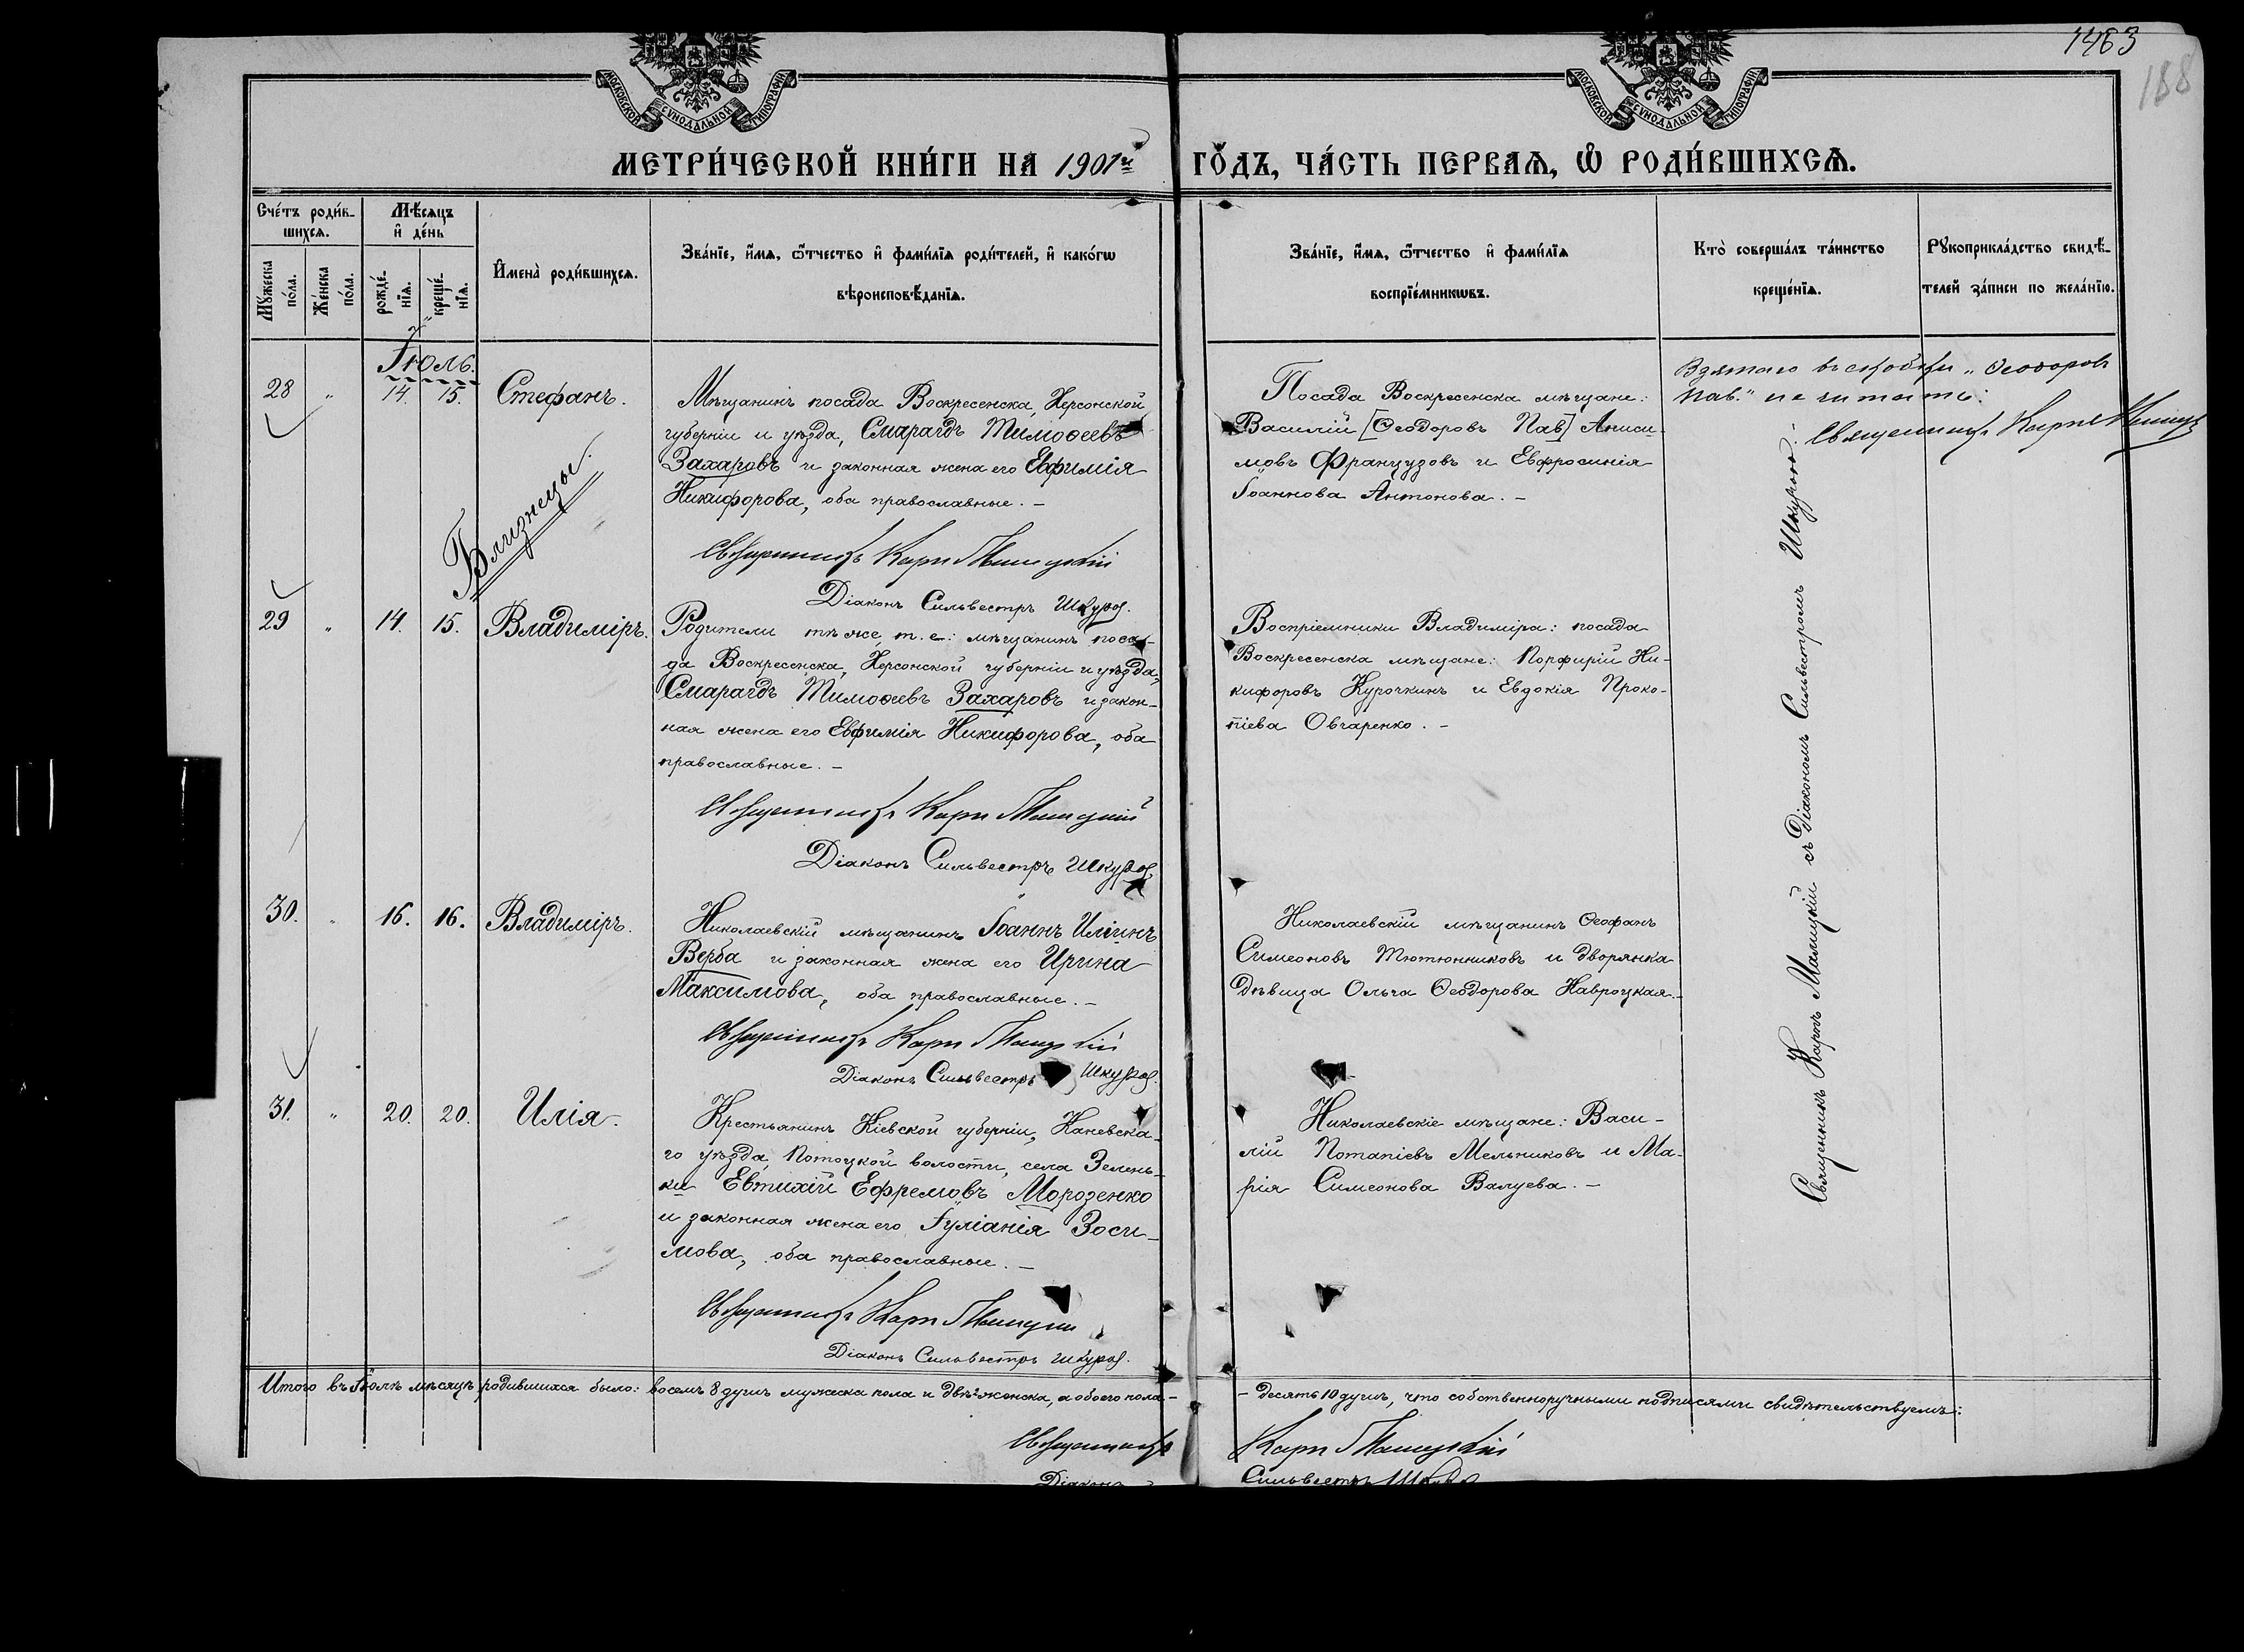 1463
188
МОСКОВСКОЙ СѴНОДАЛЬНОЙ ТИПОГРАФІИ
МОСКОВСКОЙ СѴНОДАЛЬНОЙ ТИПОГРАФІИ
МЕТРИ́ЧЕСКОЙ КНИ́ГИ НА 1901й ГО́ДЪ, ЧА́СТЬ ПЕРВАѦ, Ѡ РОДИ́ВШИХСѦ.
Сче́тъ роди́в-
шихсѧ.
Мѣ́сѧцъ
и҆ де́нь
Мꙋ́жеска
по́ла.
Же́нска
по́ла.
рожде́-
нїѧ.
креще́-
нїѧ.
И҆мена̀ роди́вшихсѧ.
Зва́нїе, и҆́мѧ, ѻ҆́тчество и҆ фами́лїѧ роди́телей, и҆ како́гѡ
вѣроисповѣ́данїѧ.
Зва́нїе, и҆́мѧ, ѻ҆́тчество и҆ фами́лїѧ
воспрїе́мникѡвъ.
Кто̀ соверша́лъ та́инство
креще́нїѧ.
Рꙋкоприкла́дство свидѣ́-
телей за́писи по жела́нїю.
Іюль.
28 " 14. 15. Стефанъ.
Мѣщанинъ посада Воскресенска, Херсонской
губерніи и уѣзда, Смарагдъ Тимоѳеевъ
Захаровъ и законная жена его Евфимія
Никифорова, оба православные. –
Священникъ Карпъ Малицкій
Діаконъ Сильвестръ Шкуро.
Посада Воскресенска мѣщане:
Василій [Ѳеодоровъ Пав] Аниси-
мовъ Французовъ и Евфросинія
Іоаннова Антонова. –
Взятаго въ скобки „Ѳеодоровъ
Пав." не читать:
Священникъ Карпъ
Близнецы.
29 " 14. 15. Владиміръ.
Родители тѣ же т. е.: мѣщанинъ поса-
да Воскресенска, Херсонской губерніи и уѣзда,
Смарагдъ Тимоѳеевъ Захаровъ и закон-
ная жена его Евфимія Никифорова, оба
православные. –
Священникъ Карпъ Малицкій
Діаконъ Сильвестръ Шкуро.
Воспріемники Владиміра: посада
Воскресенска мѣщане: Порфирій Ни-
кифоровъ Курочкинъ и Евдокія Проко-
піева Овчаренко. –
30. " 16. 16. Владиміръ.
Николаевскій мѣщанинъ Іоаннъ Иліинъ
Верба и законная жена его Ирина
Максимова, оба православные. –
Священникъ Карпъ Малицкій
Діаконъ Сильвестръ Шкуро.
Николаевскій мѣщанинъ Ѳеофанъ
Симеоновъ Тютюнниковъ и дворянка
дѣвица Ольга Ѳеодорова Навроцкая. –
31. " 20. 20. Илія.
Крестьянинъ Кіевской губерніи, Каневска-
го уѣзда, Потоцкой волости, села Зелень-
ки Евтихій Ефремовъ Морозенко
и законная жена его Іуліанія Зоси-
мова, оба православные. –
Священникъ Карпъ Малицкій
Діаконъ Сильвестръ Шкуро.
Николаевскіе мѣщане: Васи-
лій Потапіевъ Мельниковъ и Ма-
рія Симеонова Валуева. –
Священникъ Карпъ Малицкій съ Діакономъ Сильвестромъ Шкурою. –
Итого въ Іюлѣ мѣсяцѣ родившихся было: восемь 8 душъ мужеска пола и двѣ 2 женска, а обоего пола – – десять 10 душъ, что собственноручными подписями свидѣтельствуемъ:
Священникъ Карпъ Малицкій
Діаконъ Сильвестръ Шкуро